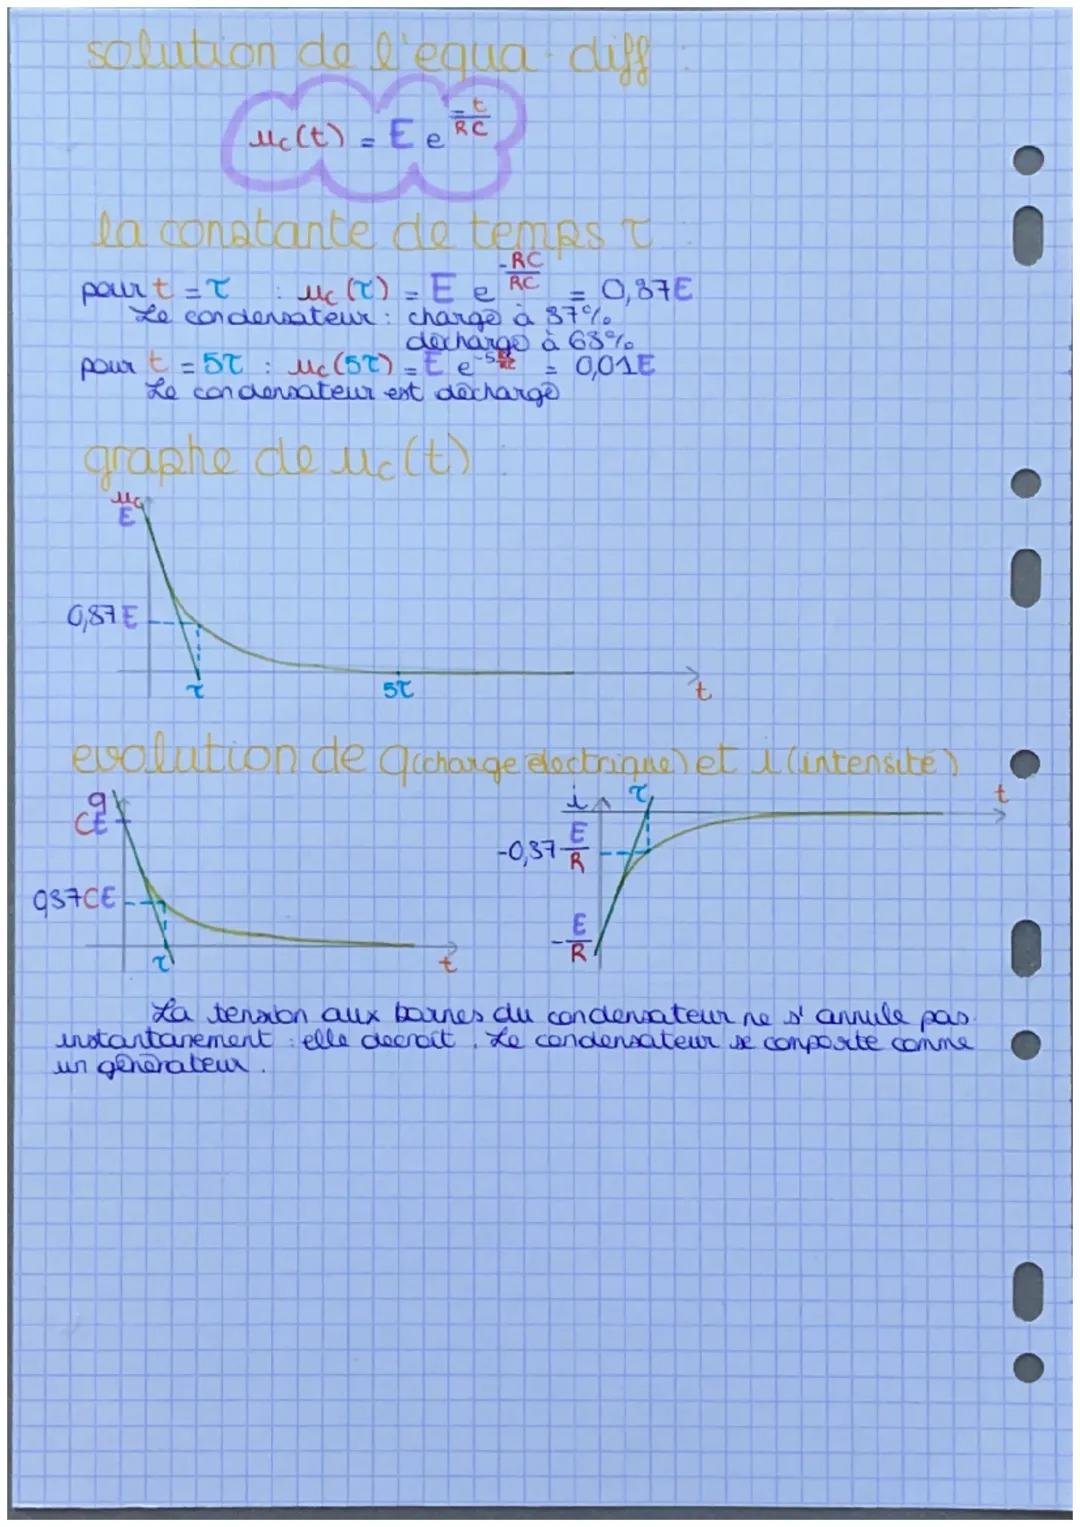 solution de l'equa. diff :
uc(t) = E e^-t/RC
la constante de temps τ :
pour t = τ : uc(τ) = E e^-RC/RC = 0,37E
Le condensateur : chargé à 37%
déchargé à 63%
pour t = 5τ : uc(5τ) = E e^-5RC/RC = 0,01E
Le condensateur est déchargé
graphe de uc(t) :
uc
E
0,37E
τ
5τ
t
evolution de q(charge électrique) et i (intensité)
q
CE
0,37CE
τ
t
i
τ
t
-0,37 E/R
-E/R
La tension aux bornes du condensateur ne s'annule pas
instantanement : elle decroit. Le condensateur se comporte comme
un générateur.